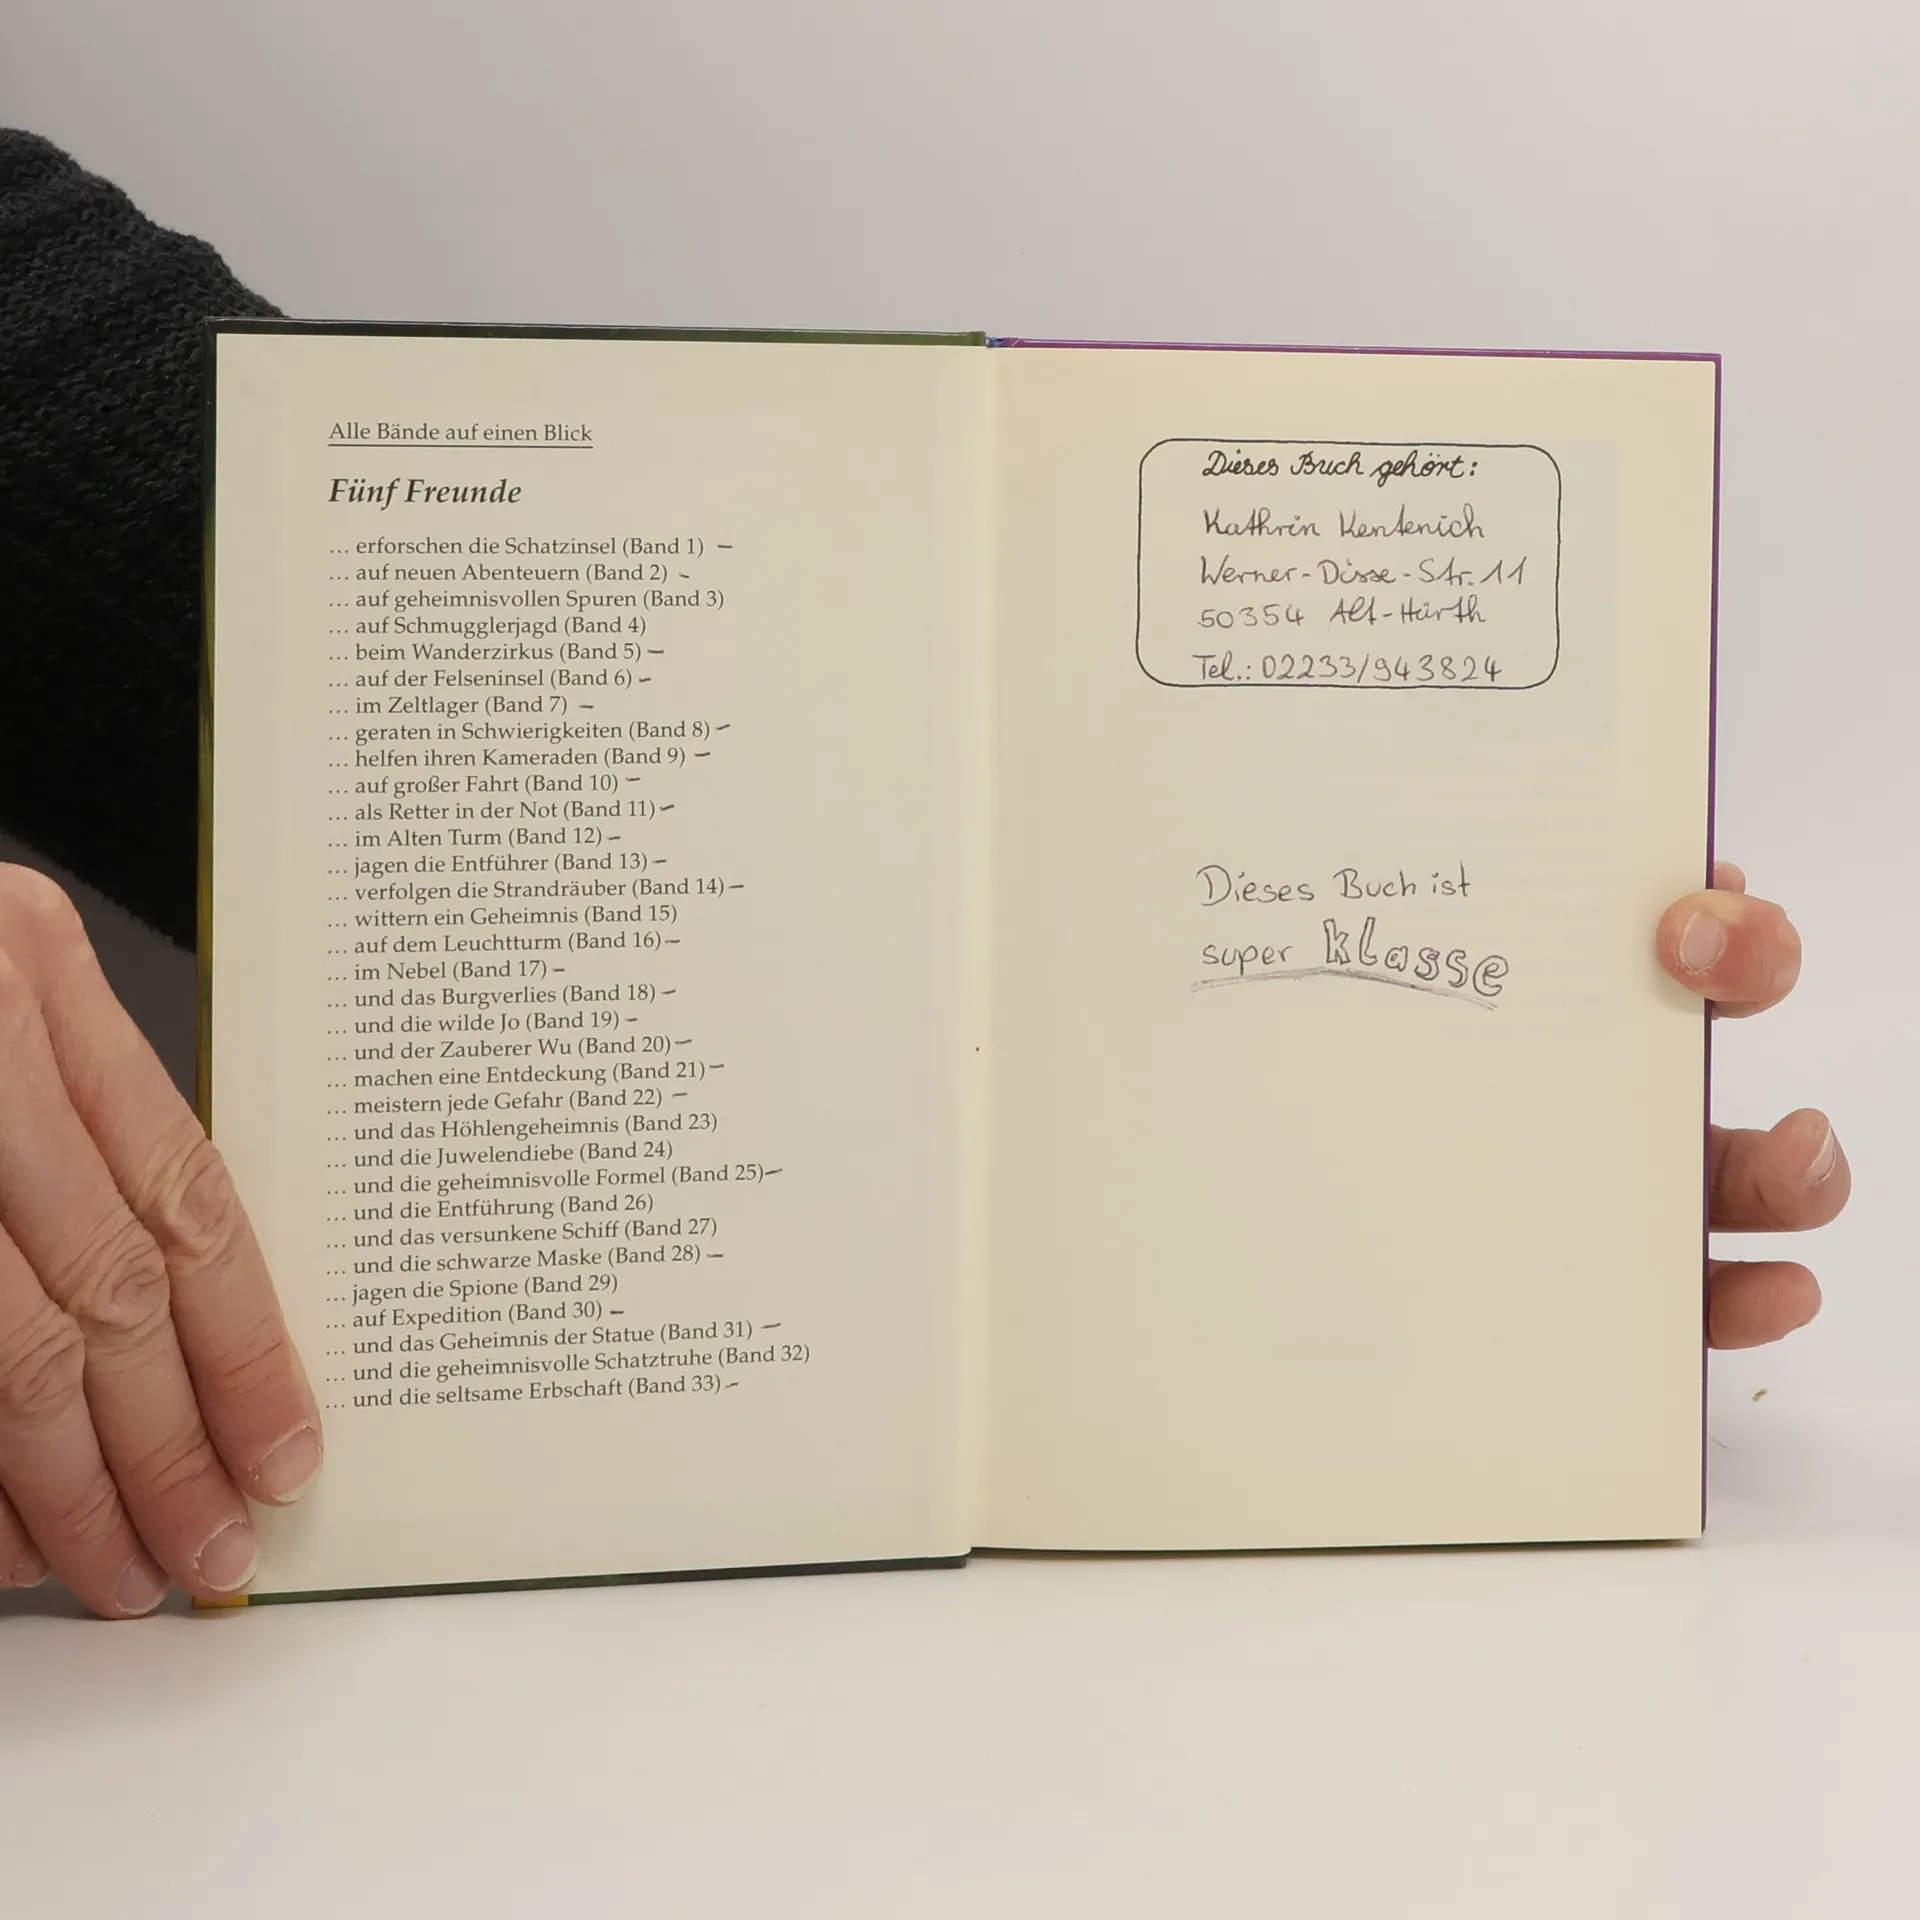 Alle Bände auf einen Blick
Fünf Freunde
... erforschen die Schatzinsel (Band 1) –
... auf neuen Abenteuern (Band 2) –
... auf geheimnisvollen Spuren (Band 3)
... auf Schmugglerjagd (Band 4)
... beim Wanderzirkus (Band 5) –
... auf der Felseninsel (Band 6) –
... im Zeltlager (Band 7) –
... geraten in Schwierigkeiten (Band 8) –
... helfen ihren Kameraden (Band 9) –
... auf großer Fahrt (Band 10) –
... als Retter in der Not (Band 11) –
... im Alten Turm (Band 12) –
... jagen die Entführer (Band 13) –
... verfolgen die Strandräuber (Band 14) –
... wittern ein Geheimnis (Band 15)
... auf dem Leuchtturm (Band 16) –
... im Nebel (Band 17) –
... und das Burgverlies (Band 18) –
... und die wilde Jo (Band 19) –
... und der Zauberer Wu (Band 20) –
... machen eine Entdeckung (Band 21) –
... meistern jede Gefahr (Band 22) –
... und das Höhlengeheimnis (Band 23)
... und die Juwelendiebe (Band 24)
... und die geheimnisvolle Formel (Band 25) –
... und die Entführung (Band 26)
... und das versunkene Schiff (Band 27)
... und die schwarze Maske (Band 28) –
... jagen die Spione (Band 29)
... auf Expedition (Band 30) –
... und das Geheimnis der Statue (Band 31) –
... und die geheimnisvolle Schatztruhe (Band 32)
... und die seltsame Erbschaft (Band 33) –
Dieses Buch gehört:
Kathrin Kentenich
Werner-Disse-Str. 11
50354 Alt-Hürth
Tel.: 02233/943824
Dieses Buch ist
super klasse